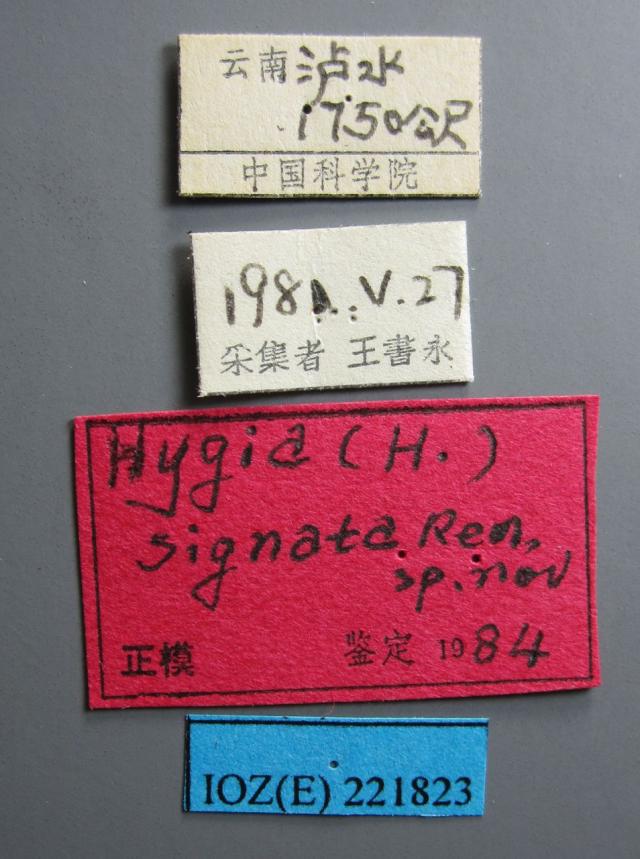 云南 泸水
1750公尺
中国科学院
1981.V.27
采集者 王書永
Hygia (H.)
signata Ren,
sp. nov
正模 鉴定 1984
IOZ(E) 221823